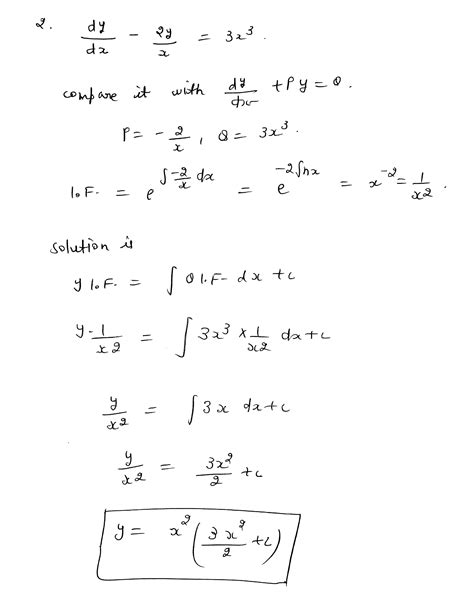 2. dy/dx - 2y/x = 3x³.
compare it with dy/dx + Py = Q.
P = - 2/x, Q = 3x³.
I.F. = e^(∫-2/x dx) = e^(-2 lnx) = x^-2 = 1/x2.
solution is
y I.F. = ∫ Q I.F. dx + c
y·1/x2 = ∫ 3x³ × 1/x2 dx + c
y/x2 = ∫ 3x dx + c
y/x2 = 3x²/2 + c
y = x² (3x²/2 + c)